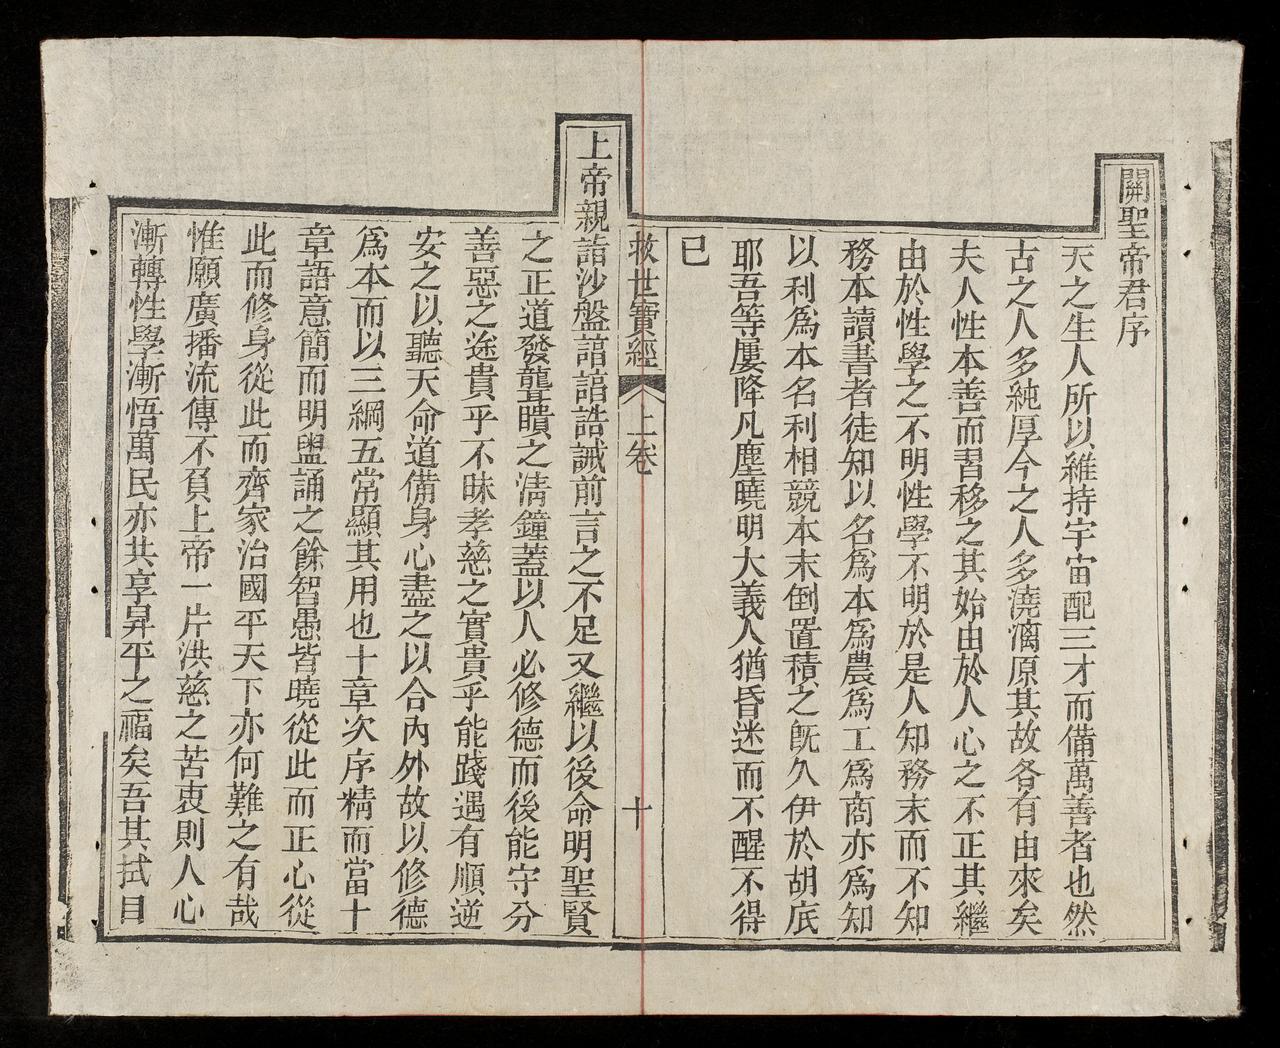 關聖帝君序
天之生人所以維持宇宙配三才而備萬善者也然
古之人多純厚今之人多澆漓原其故各有由來矣
夫人性本善而習移之其始由於人心之不正其繼
由於性學之不明性學不明於是人知務末而不知
務本讀書者徒知以名爲本爲農爲工爲商亦爲知
以利爲本名利相競本末倒置積之旣久伊於胡底
耶吾等屢降凡塵曉明大義人猶昏迷而不醒不得
已
救世寶經 上卷 十
上帝親詣沙盤諳諳誥誡前言之不足又繼以後命明聖賢
之正道發聾瞶之淸鐘蓋以人必修德而後能守分
善惡之途貴乎不昧孝慈之實貴乎能踐遇有順逆
安之以聽天命道備身心盡之以合內外故以修德
爲本而以三綱五常顯其用也十章次序精而當十
章語意簡而明盥誦之餘智愚皆曉從此而正心從
此而修身從此而齊家治國平天下亦何難之有哉
惟願廣播流傳不負上帝一片洪慈之苦衷則人心
漸轉性學漸悟萬民亦共享昇平之福矣吾其拭目